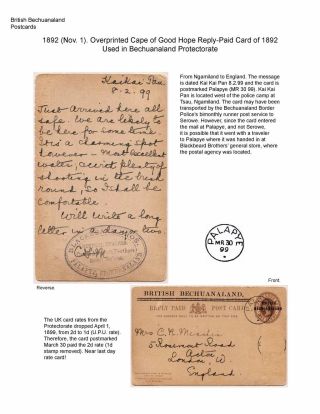 British Bechuanaland
Postcards
1892 (Nov. 1). Overprinted Cape of Good Hope Reply-Paid Card of 1892
Used in Bechuanaland Protectorate
Kaikai Pan
8.2.99
Just arrived here all
safe. We are likely to
be here for some time.
It is a charming spot
however - most excellent
water, & plenty of
shooting in the bush
round, so I shall be
comfortable.
Will write a long
letter in a day or two
From Ngamiland to England. The message
is dated Kai Kai Pan 8.2.99 and the card is
postmarked Palapye (MR 30 99). Kai Kai
Pan is located west of the police camp at
Tsau, Ngamiland. The card may have been
transported by the Bechuanaland Border
Police's bimonthly runner post service to
Serowe. However, since the card entered
the mail at Palapye, and not Serowe,
it is possible that it went with a traveler
to Palapye where it was handed in at
Blackbeard Brothers' general store, where
the postal agency was located.
PALAPYE
MR 30
99
Reverse
Front
The UK card rates from the
Protectorate dropped April 1,
1899, from 2d to 1d (U.P.U. rate).
Therefore, the card postmarked
March 30 paid the 2d rate (1d
stamp removed). Near last day
rate card!
BRITISH BECHUANALAND.
REPLY PAID POST CARD
Mrs C. H.
5 Rosemont Road
Acton
London, W.
England